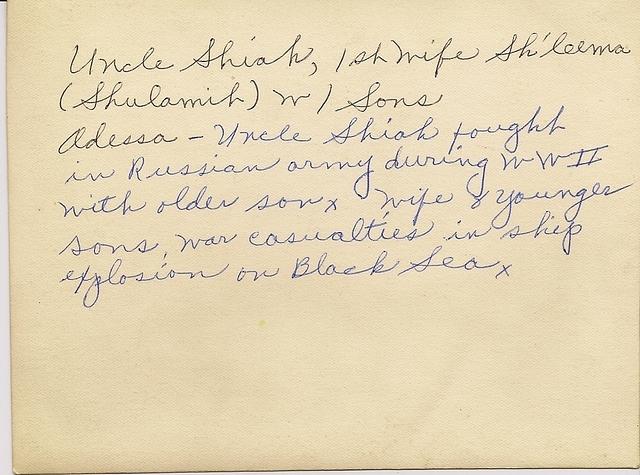 Uncle Shiah, 1st Wife Sh'leema
(Shulamih) w/ Sons
Odessa - Uncle Shiah fought
in Russian army during WWII
with older sonx Wife & younger
sons, war casualties in ship
explosion on Black Seax